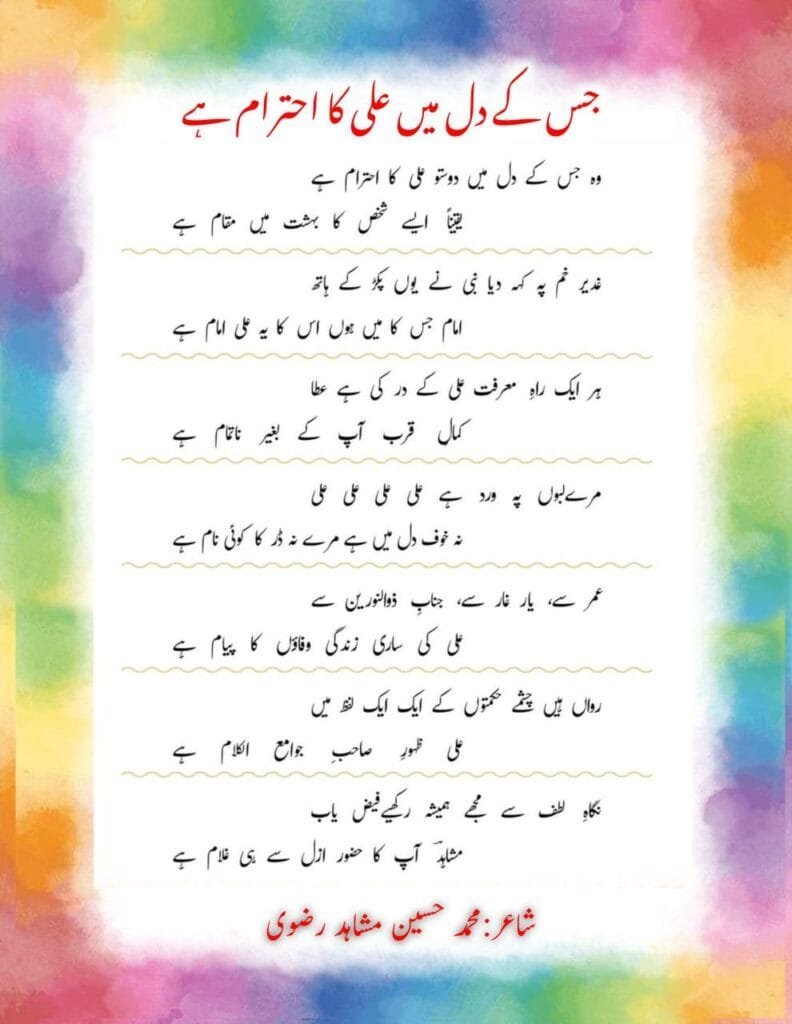 جس کے دل میں علی کا احترام ہے
وہ جس کے دل میں دوستو علی کا احترام ہے
یقیناً ایسے شخص کا بہشت میں مقام ہے
غدیر خم پہ کہہ دیا نبی نے یوں پکڑ کے ہاتھ
امام جس کا میں ہوں اس کا یہ علی امام ہے
ہر ایک راہِ معرفت علی کے در کی ہے عطا
کمال قرب آپ کے بغیر ناتمام ہے
مرے لبوں پہ ورد ہے علی علی علی علی
نہ خوف دل میں ہے مرے نہ ڈر کا کوئی نام ہے
عمر سے، یار غار سے، جنابِ ذوالنورین سے
علی کی ساری زندگی وفاؤں کا پیام ہے
رواں ہیں چشمے حکمتوں کے ایک ایک لفظ میں
علی ظہورِ صاحبِ جوامع الکلام ہے
نگاہِ لطف سے مجھے ہمیشہ رکھیے فیض یاب
مشاہدؔ آپ کا حضور ازل سے ہی غلام ہے
شاعر: محمد حسین مشاہد رضوی